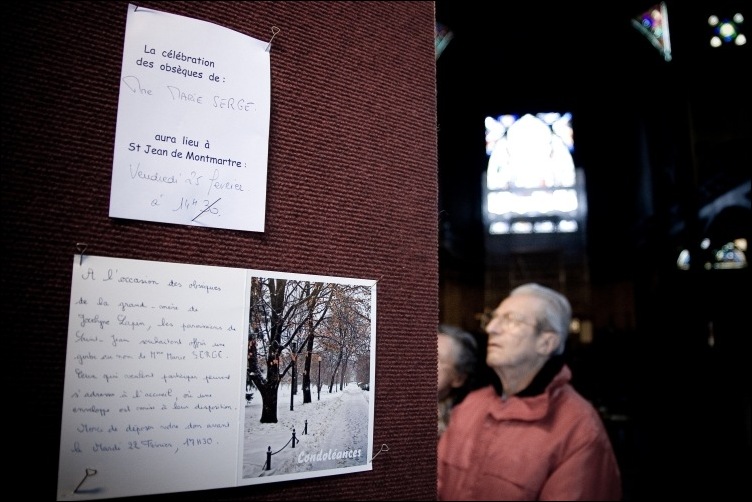 La célébration
des obsèques de :
Mme MARIE SERGE.
aura lieu à
St Jean de Montmartre :
Vendredi 25 février
à 14H30.
A l'occasion des obsèques
de la grand-mère de
Jocelyne Lapin, les paroissiens de
Saint-Jean souhaitent offrir une
gerbe au nom de Mme Marie SERGE.
Ceux qui veulent participer peuvent
s'adresser à l'accueil, où une
enveloppe est mise à leur disposition.
Merci de déposer votre don avant
le Mardi 22 Février, 17H30.
Condoléances